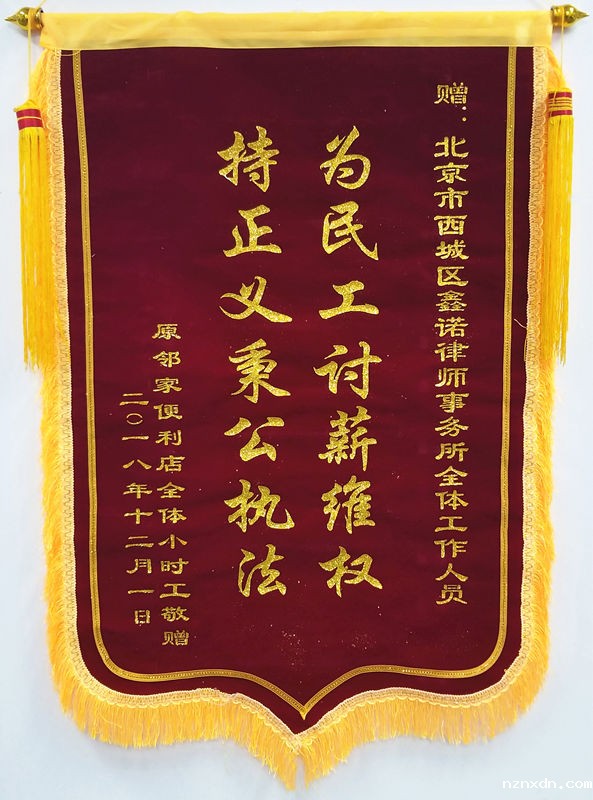 赠：北京市西城区鑫诺律师事务所全体工作人员
为民工讨薪维权
持正义秉公执法
原邻家便利店全体小时工敬赠
二〇一八年十二月一日
nznxdn.com